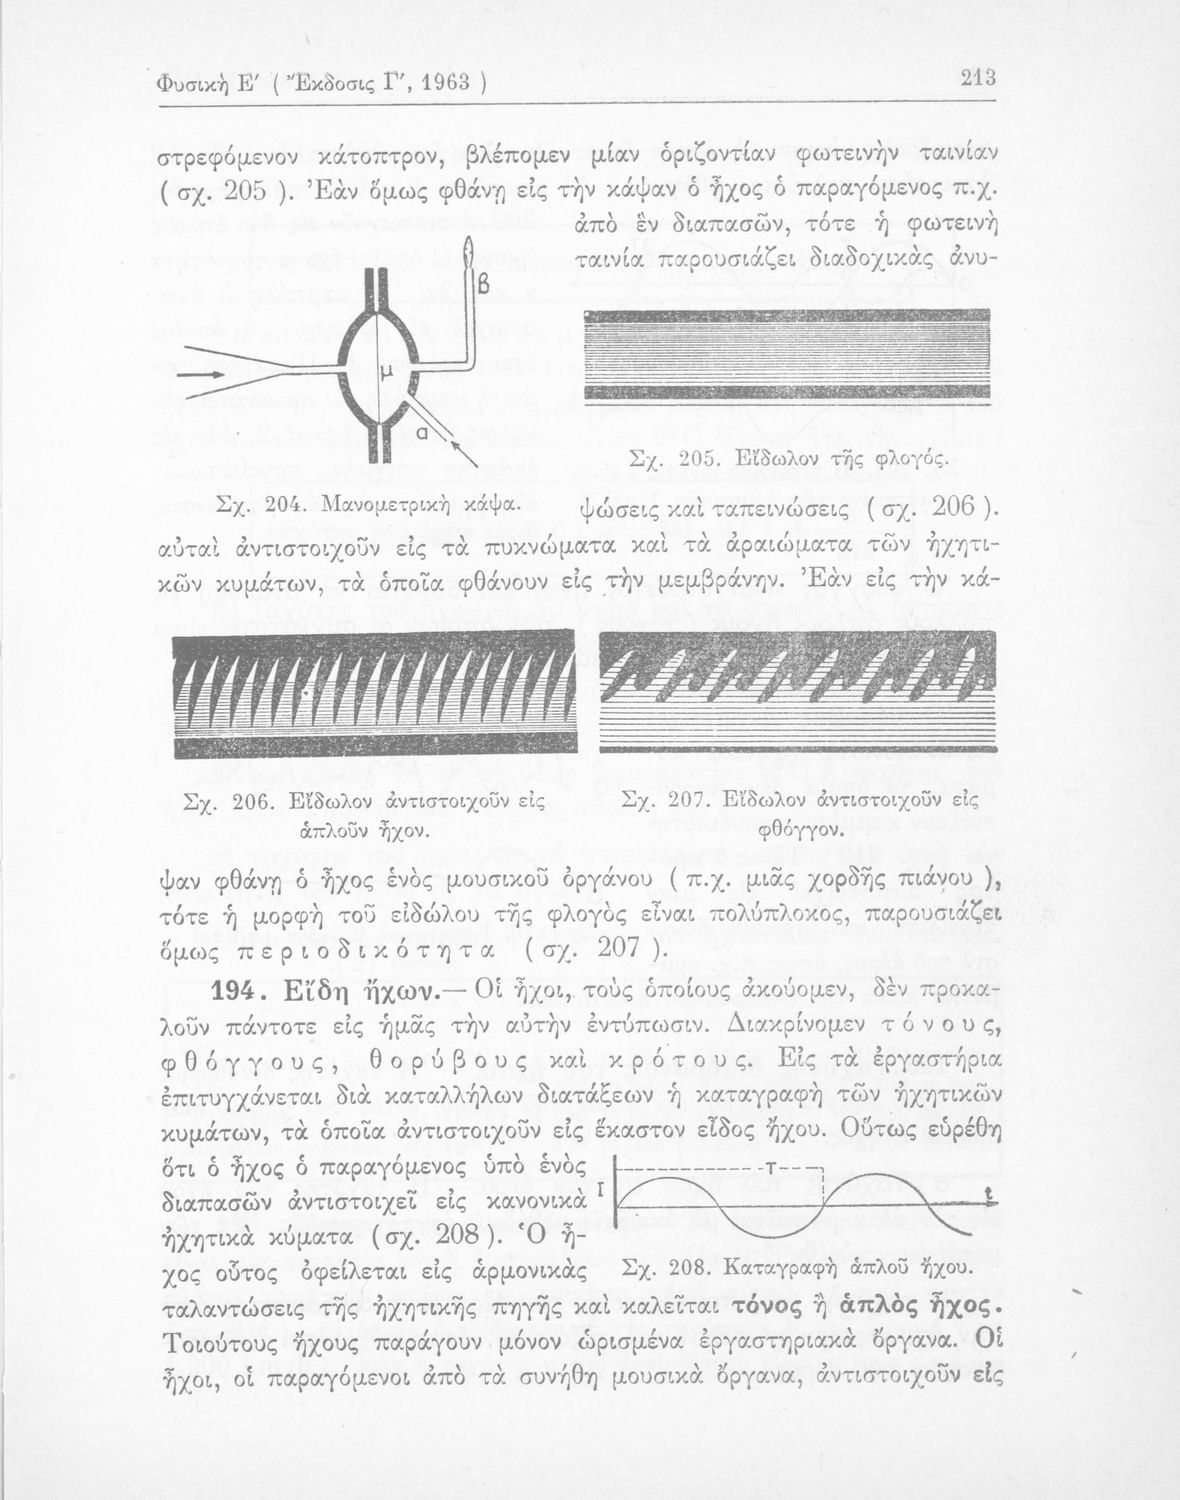 Φυσικὴ Ε′ ( Ἔκδοσις Γ′, 1963 )
213
στρεφόμενον κάτοπτρον, βλέπομεν μίαν ὁριζοντίαν φωτεινὴν ταινίαν
( σχ. 205 ). Ἐὰν ὅμως φθάνῃ εἰς τὴν κάψαν ὁ ἦχος ὁ παραγόμενος π.χ.
ἀπὸ ἓν διαπασῶν, τότε ἡ φωτεινὴ
ταινία παρουσιάζει διαδοχικὰς ἀνυ-
β
μ
α
Σχ. 205. Εἴδωλον τῆς φλογός.
Σχ. 204. Μανομετρικὴ κάψα.
ψώσεις καὶ ταπεινώσεις ( σχ. 206 ).
αὐταὶ ἀντιστοιχοῦν εἰς τὰ πυκνώματα καὶ τὰ ἀραιώματα τῶν ἠχητι-
κῶν κυμάτων, τὰ ὁποῖα φθάνουν εἰς τὴν μεμβράνην. Ἐὰν εἰς τὴν κά-
Σχ. 206. Εἴδωλον ἀντιστοιχοῦν εἰς
ἁπλοῦν ἦχον.
Σχ. 207. Εἴδωλον ἀντιστοιχοῦν εἰς
φθόγγον.
ψαν φθάνῃ ὁ ἦχος ἑνὸς μουσικοῦ ὀργάνου ( π.χ. μιᾶς χορδῆς πιάνου ),
τότε ἡ μορφὴ τοῦ εἰδώλου τῆς φλογὸς εἶναι πολύπλοκος, παρουσιάζει
ὅμως περιοδικότητα ( σχ. 207 ).
194. Εἴδη ἤχων.— Οἱ ἦχοι, τοὺς ὁποίους ἀκούομεν, δὲν προκα-
λοῦν πάντοτε εἰς ἡμᾶς τὴν αὐτὴν ἐντύπωσιν. Διακρίνομεν τόνους,
φθόγγους, θορύβους καὶ κρότους. Εἰς τὰ ἐργαστήρια
ἐπιτυγχάνεται διὰ καταλλήλων διατάξεων ἡ καταγραφὴ τῶν ἠχητικῶν
κυμάτων, τὰ ὁποῖα ἀντιστοιχοῦν εἰς ἕκαστον εἶδος ἤχου. Οὕτως εὑρέθη
ὅτι ὁ ἦχος ὁ παραγόμενος ὑπὸ ἑνὸς
διαπασῶν ἀντιστοιχεῖ εἰς κανονικὰ
ἠχητικὰ κύματα (σχ. 208). Ὁ ἦ-
χος οὗτος ὀφείλεται εἰς ἁρμονικὰς
T
I
t
Σχ. 208. Καταγραφὴ ἁπλοῦ ἤχου.
ταλαντώσεις τῆς ἠχητικῆς πηγῆς καὶ καλεῖται τόνος ἢ ἁπλὸς ἦχος.
Τοιούτους ἤχους παράγουν μόνον ὡρισμένα ἐργαστηριακὰ ὄργανα. Οἱ
ἦχοι, οἱ παραγόμενοι ἀπὸ τὰ συνήθη μουσικὰ ὄργανα, ἀντιστοιχοῦν εἰς